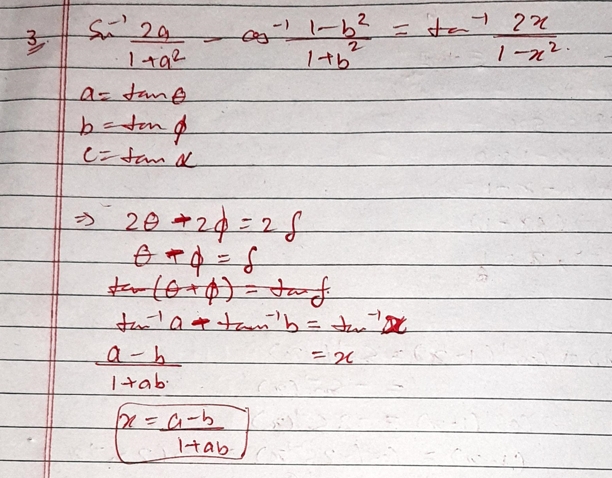 3, Sin⁻¹ 2a/(1+a²) - cos⁻¹ (1-b²)/(1+b²) = tan⁻¹ 2x/(1-x²).
a = tan θ
b = tan ϕ
c = tan α
⇒ 2θ - 2ϕ = 2δ
θ - ϕ = δ
tan(θ+ϕ) = tan δ.
tan⁻¹a - tan⁻¹b = tan⁻¹x
(a-b)/(1+ab.) = x
x = (a-b)/(1+ab.)